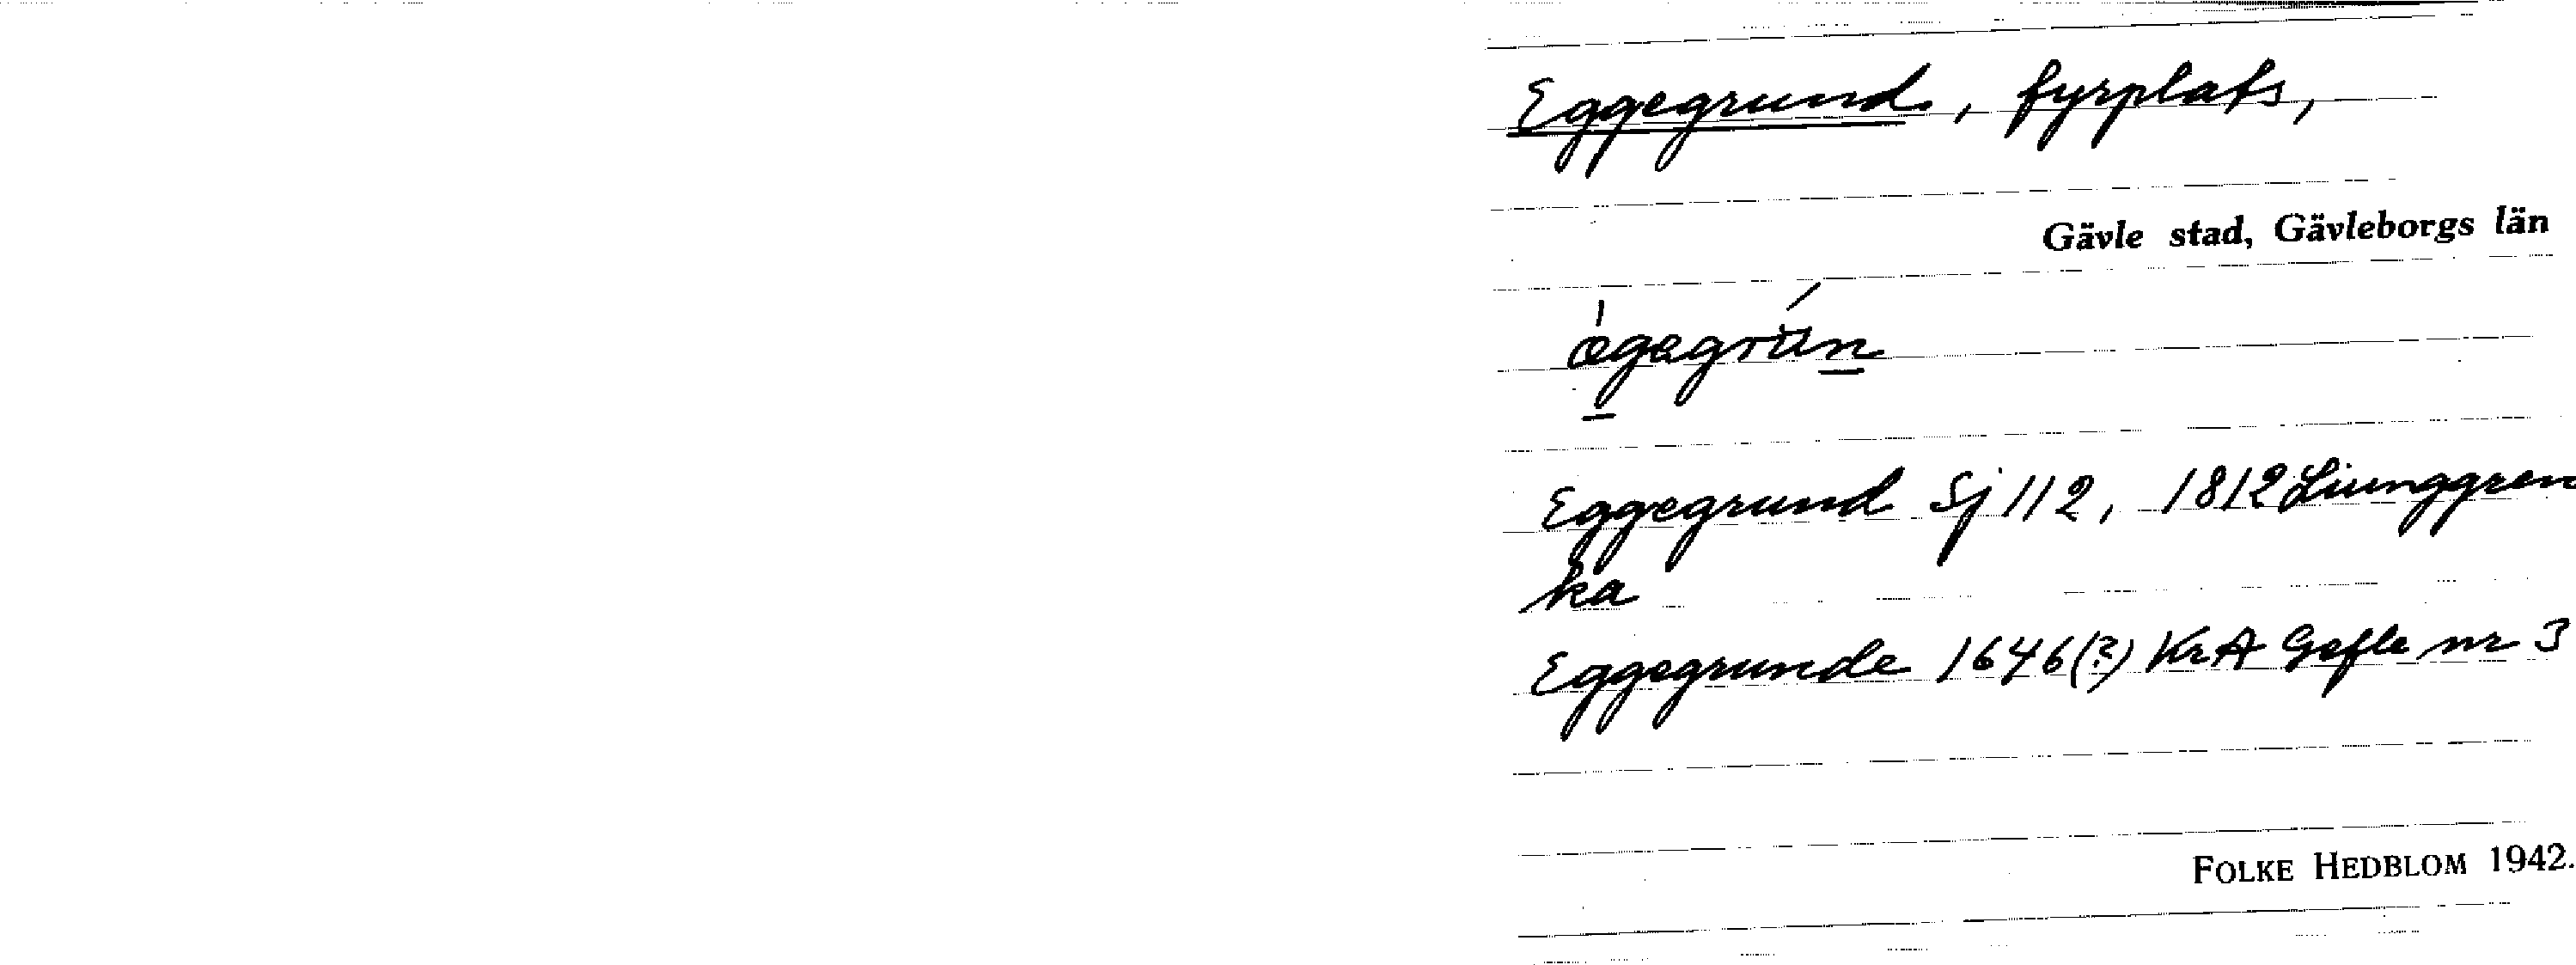 Eggegrund, fyrplats,
Gävle stad, Gävleborgs län
Eggegrund Sj 112, 1812 Ljunggren
ka
Eggegrunde 1646(?) KrA Gefle nr 3
FOLKE HEDBLOM 1942.